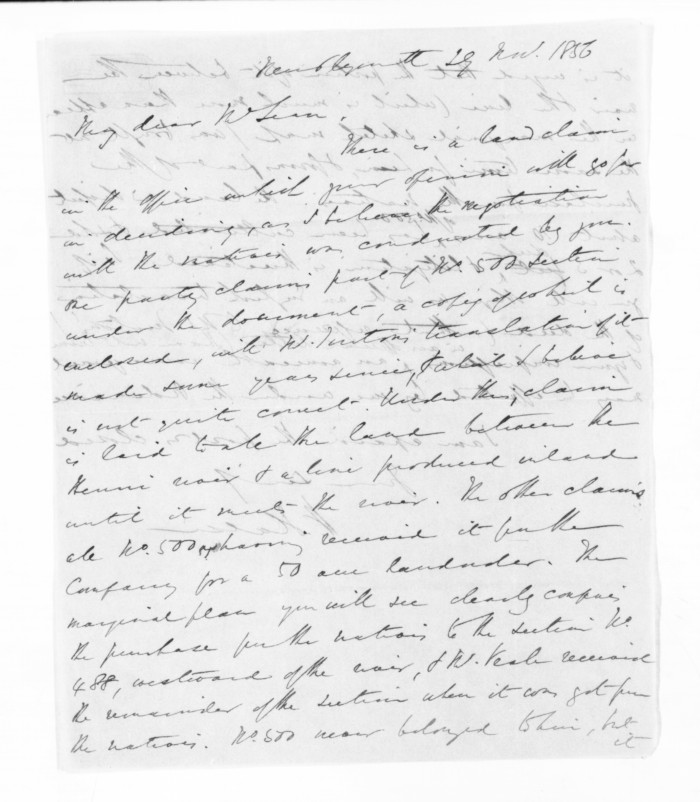 New Plymouth 29 Nov. 1856
My dear McLean,
There is a land claim
in the office which your opinion will go far
in deciding, as I believe the negotiation
with the natives was conducted by you.
One party claims part of No. 500 section
under the document, a copy of which is
enclosed, with Mr. Turton's translation of it
made some years since, & which I believe
is not quite correct. Under this, claim
is laid to all the land between the
Henui river & a line produced inland
until it meets the river. The other claims
all No. 500 as having received it from the
Company for a 50 acre landorder. The
marginal plan you will see clearly confines
the purchase from the natives to the section No.
488, westward of the river, & Mr. Veale received
the remainder of the section when it was got from
the natives. No. 500 never belonged to him, but
it